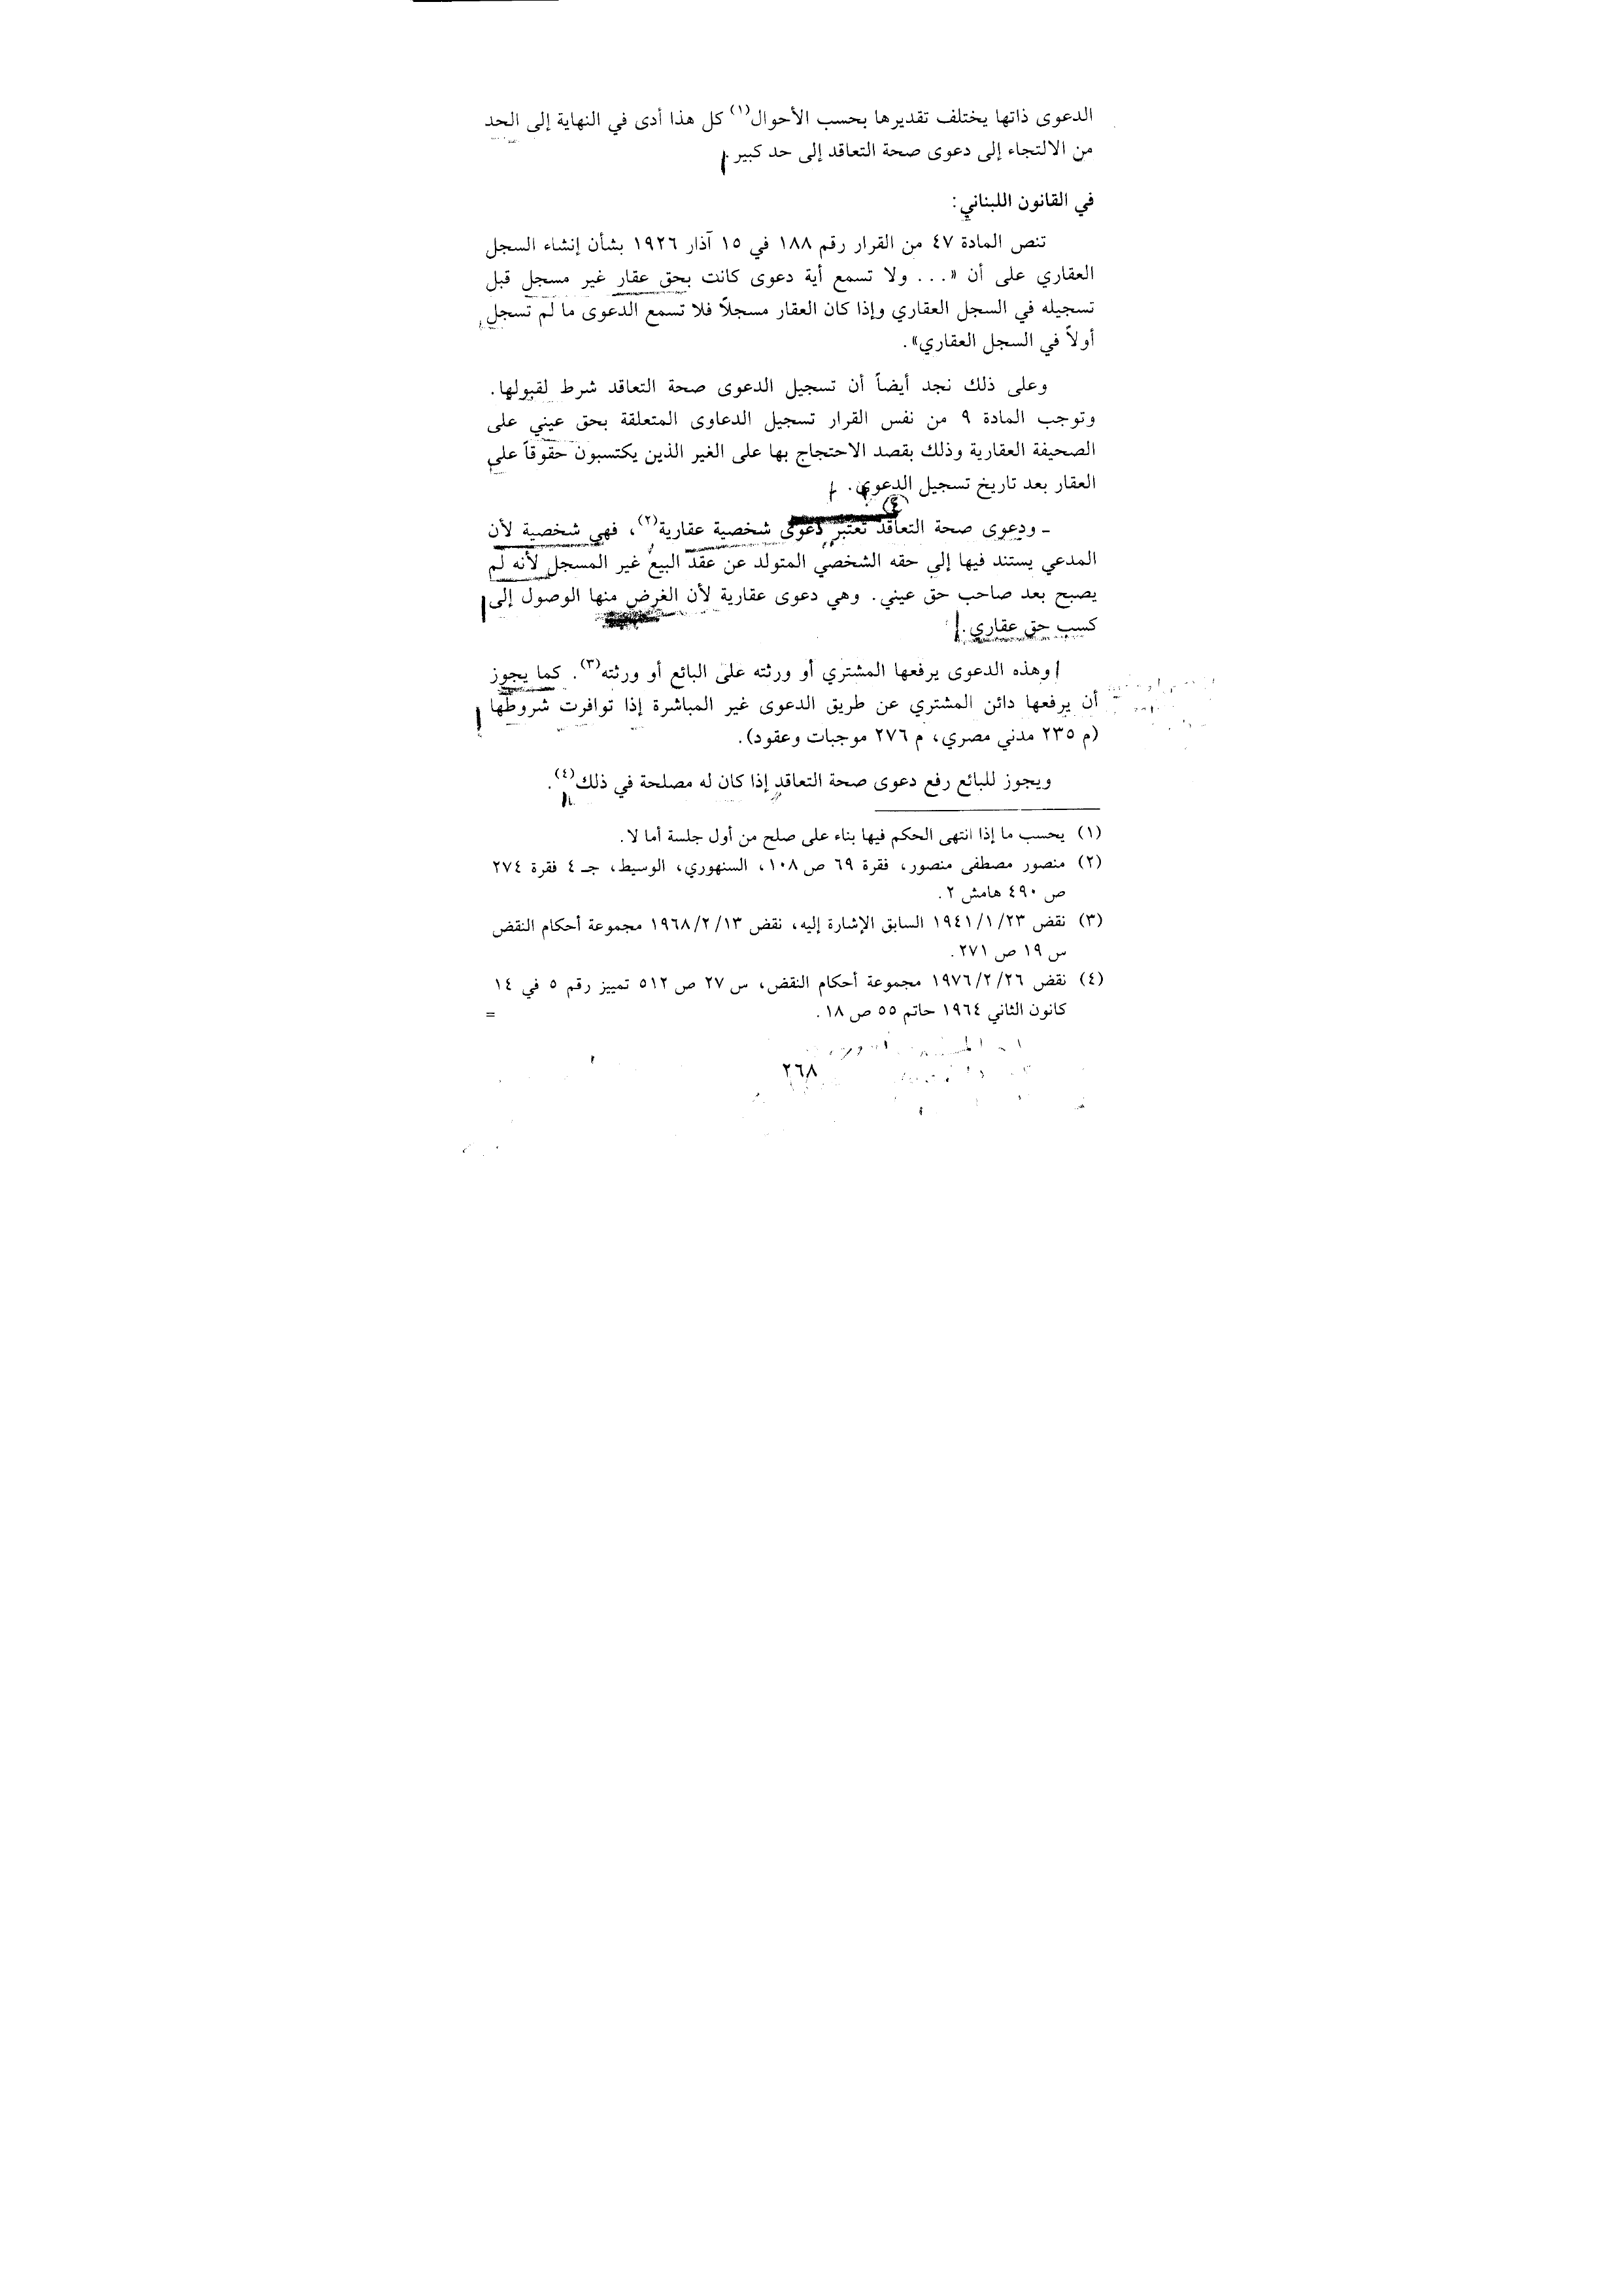 الدعوى ذاتها يختلف تقديرها بحسب الأحوال(١) كل هذا أدى في النهاية إلى الحد
من الالتجاء إلى دعوى صحة التعاقد إلى حد كبير.
في القانون اللبناني:
تنص المادة ٤٧ من القرار رقم ١٨٨ في ١٥ آذار ١٩٢٦ بشأن إنشاء السجل
العقاري على أن «... ولا تسمع أية دعوى كانت بحق عقار غير مسجل قبل
تسجيله في السجل العقاري وإذا كان العقار مسجلاً فلا تسمع الدعوى ما لم تسجل
أولاً في السجل العقاري».
وعلى ذلك نجد أيضاً أن تسجيل الدعوى صحة التعاقد شرط لقبولها.
وتوجب المادة ٩ من نفس القرار تسجيل الدعاوى المتعلقة بحق عيني على
الصحيفة العقارية وذلك بقصد الاحتجاج بها على الغير الذين يكتسبون حقوقاً على
العقار بعد تاريخ تسجيل الدعوى.
ـ ودعوى صحة التعاقد تعتبر دعوى شخصية عقارية(٢)، فهي شخصية لأن
المدعي يستند فيها إلى حقه الشخصي المتولد عن عقد البيع غير المسجل لأنه لم
يصبح بعد صاحب حق عيني. وهي دعوى عقارية لأن الغرض منها الوصول إلى
كسب حق عقاري.
وهذه الدعوى يرفعها المشتري أو ورثته على البائع أو ورثته(٣). كما يجوز
أن يرفعها دائن المشتري عن طريق الدعوى غير المباشرة إذا توافرت شروطها
(م ٢٣٥ مدني مصري، م ٢٧٦ موجبات وعقود).
ويجوز للبائع رفع دعوى صحة التعاقد إذا كان له مصلحة في ذلك(٤).
(١) يحسب ما إذا انتهى الحكم فيها بناء على صلح من أول جلسة أما لا.
(٢) منصور مصطفى منصور، فقرة ٦٩ ص ١٠٨، السنهوري، الوسيط، جـ ٤ فقرة ٢٧٤
ص ٤٩٠ هامش ٢.
(٣) نقض ١٩٤١/١/٢٣ السابق الإشارة إليه، نقض ١٩٦٨/٢/١٣ مجموعة أحكام النقض
س ١٩ ص ٢٧١.
(٤) نقض ١٩٧٦/٢/٢٦ مجموعة أحكام النقض، س ٢٧ ص ٥١٢ تمييز رقم ٥ في ١٤
كانون الثاني ١٩٦٤ حاتم ٥٥ ص ١٨. =
٢٦٨